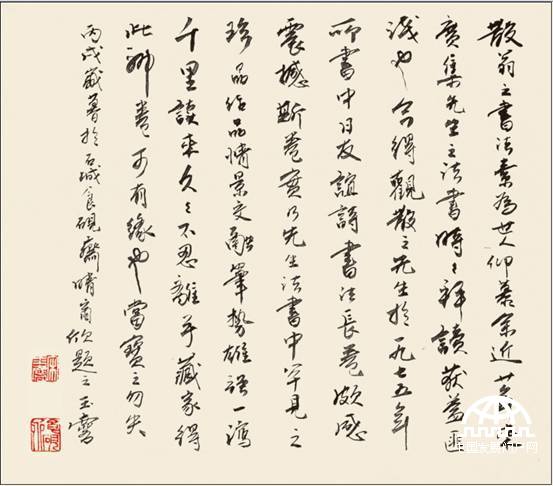 散翁之書法素為世人仰慕余近廿年
廣集先生之法書時々拜讀獲益匪
淺也今得觀散之先生於一九七五年
所書中日友誼詩書法長卷頗感
震撼斯卷實乃先生法書中罕見之
珍品作品情景交融筆勢雄強一瀉
千里讀來久々不忍離手藏家得
此卷可有緣也當寶之勿失
丙戌歲暮於石城食硯齋晴窗欣題之
中国发展门户网